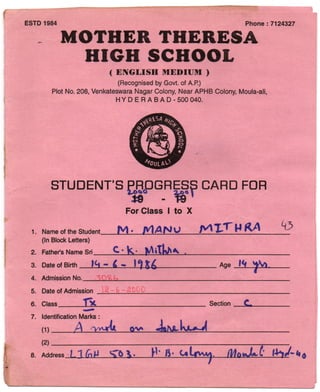 ESTD 1984 Phone : 7124327
MOTHER THERESA
HIGH SCHOOL
( ENGLISH MEDIUM )
(Recognised by Govt. of A.P.)
Plot No. 208, Venkateswara Nagar Colony, Near APHB Colony, Moula-ali,
HYDERABAD - 500 040.
MOTHER THERESA HIGH SCHOOL
MOULALI
STUDENT'S PROGRESS CARD FOR
2000 2001
19 - 19
For Class I to X
1. Name of the Student M. MANU MITHRA 43
(In Block Letters)
2. Father's Name Sri C. K. Mithra.
3. Date of Birth 14 - 6 - 1986 Age 14 yrs.
4. Admission No. 3086
5. Date of Admission 12-6-2000
6. Class IX Section C
7. Identification Marks :
(1) A mole on forehead
(2)
8. Address LIGH 503. H. B. colony. Moulali Hyd-40